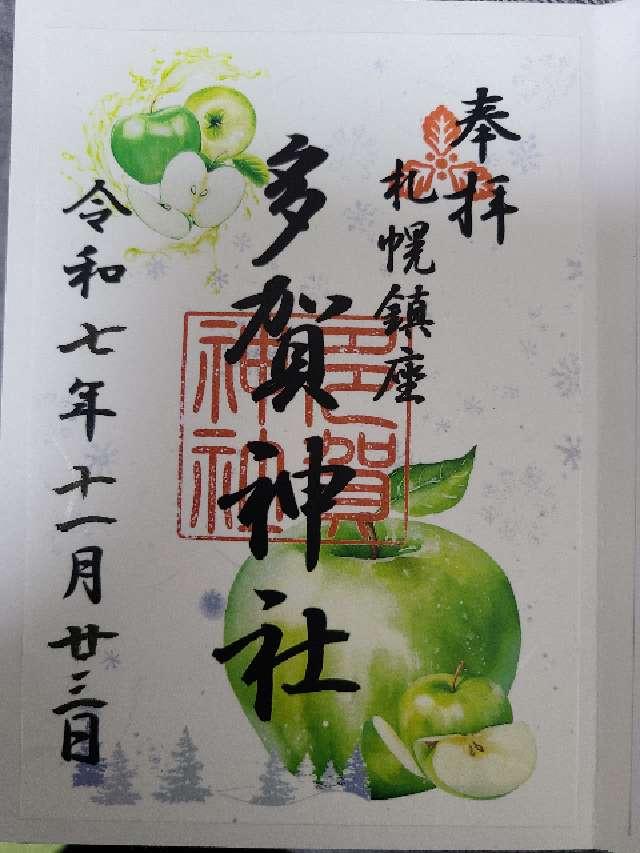 奉拝
札幌鎮座
多賀神社
多賀
神社
令和七年十一月廿三日